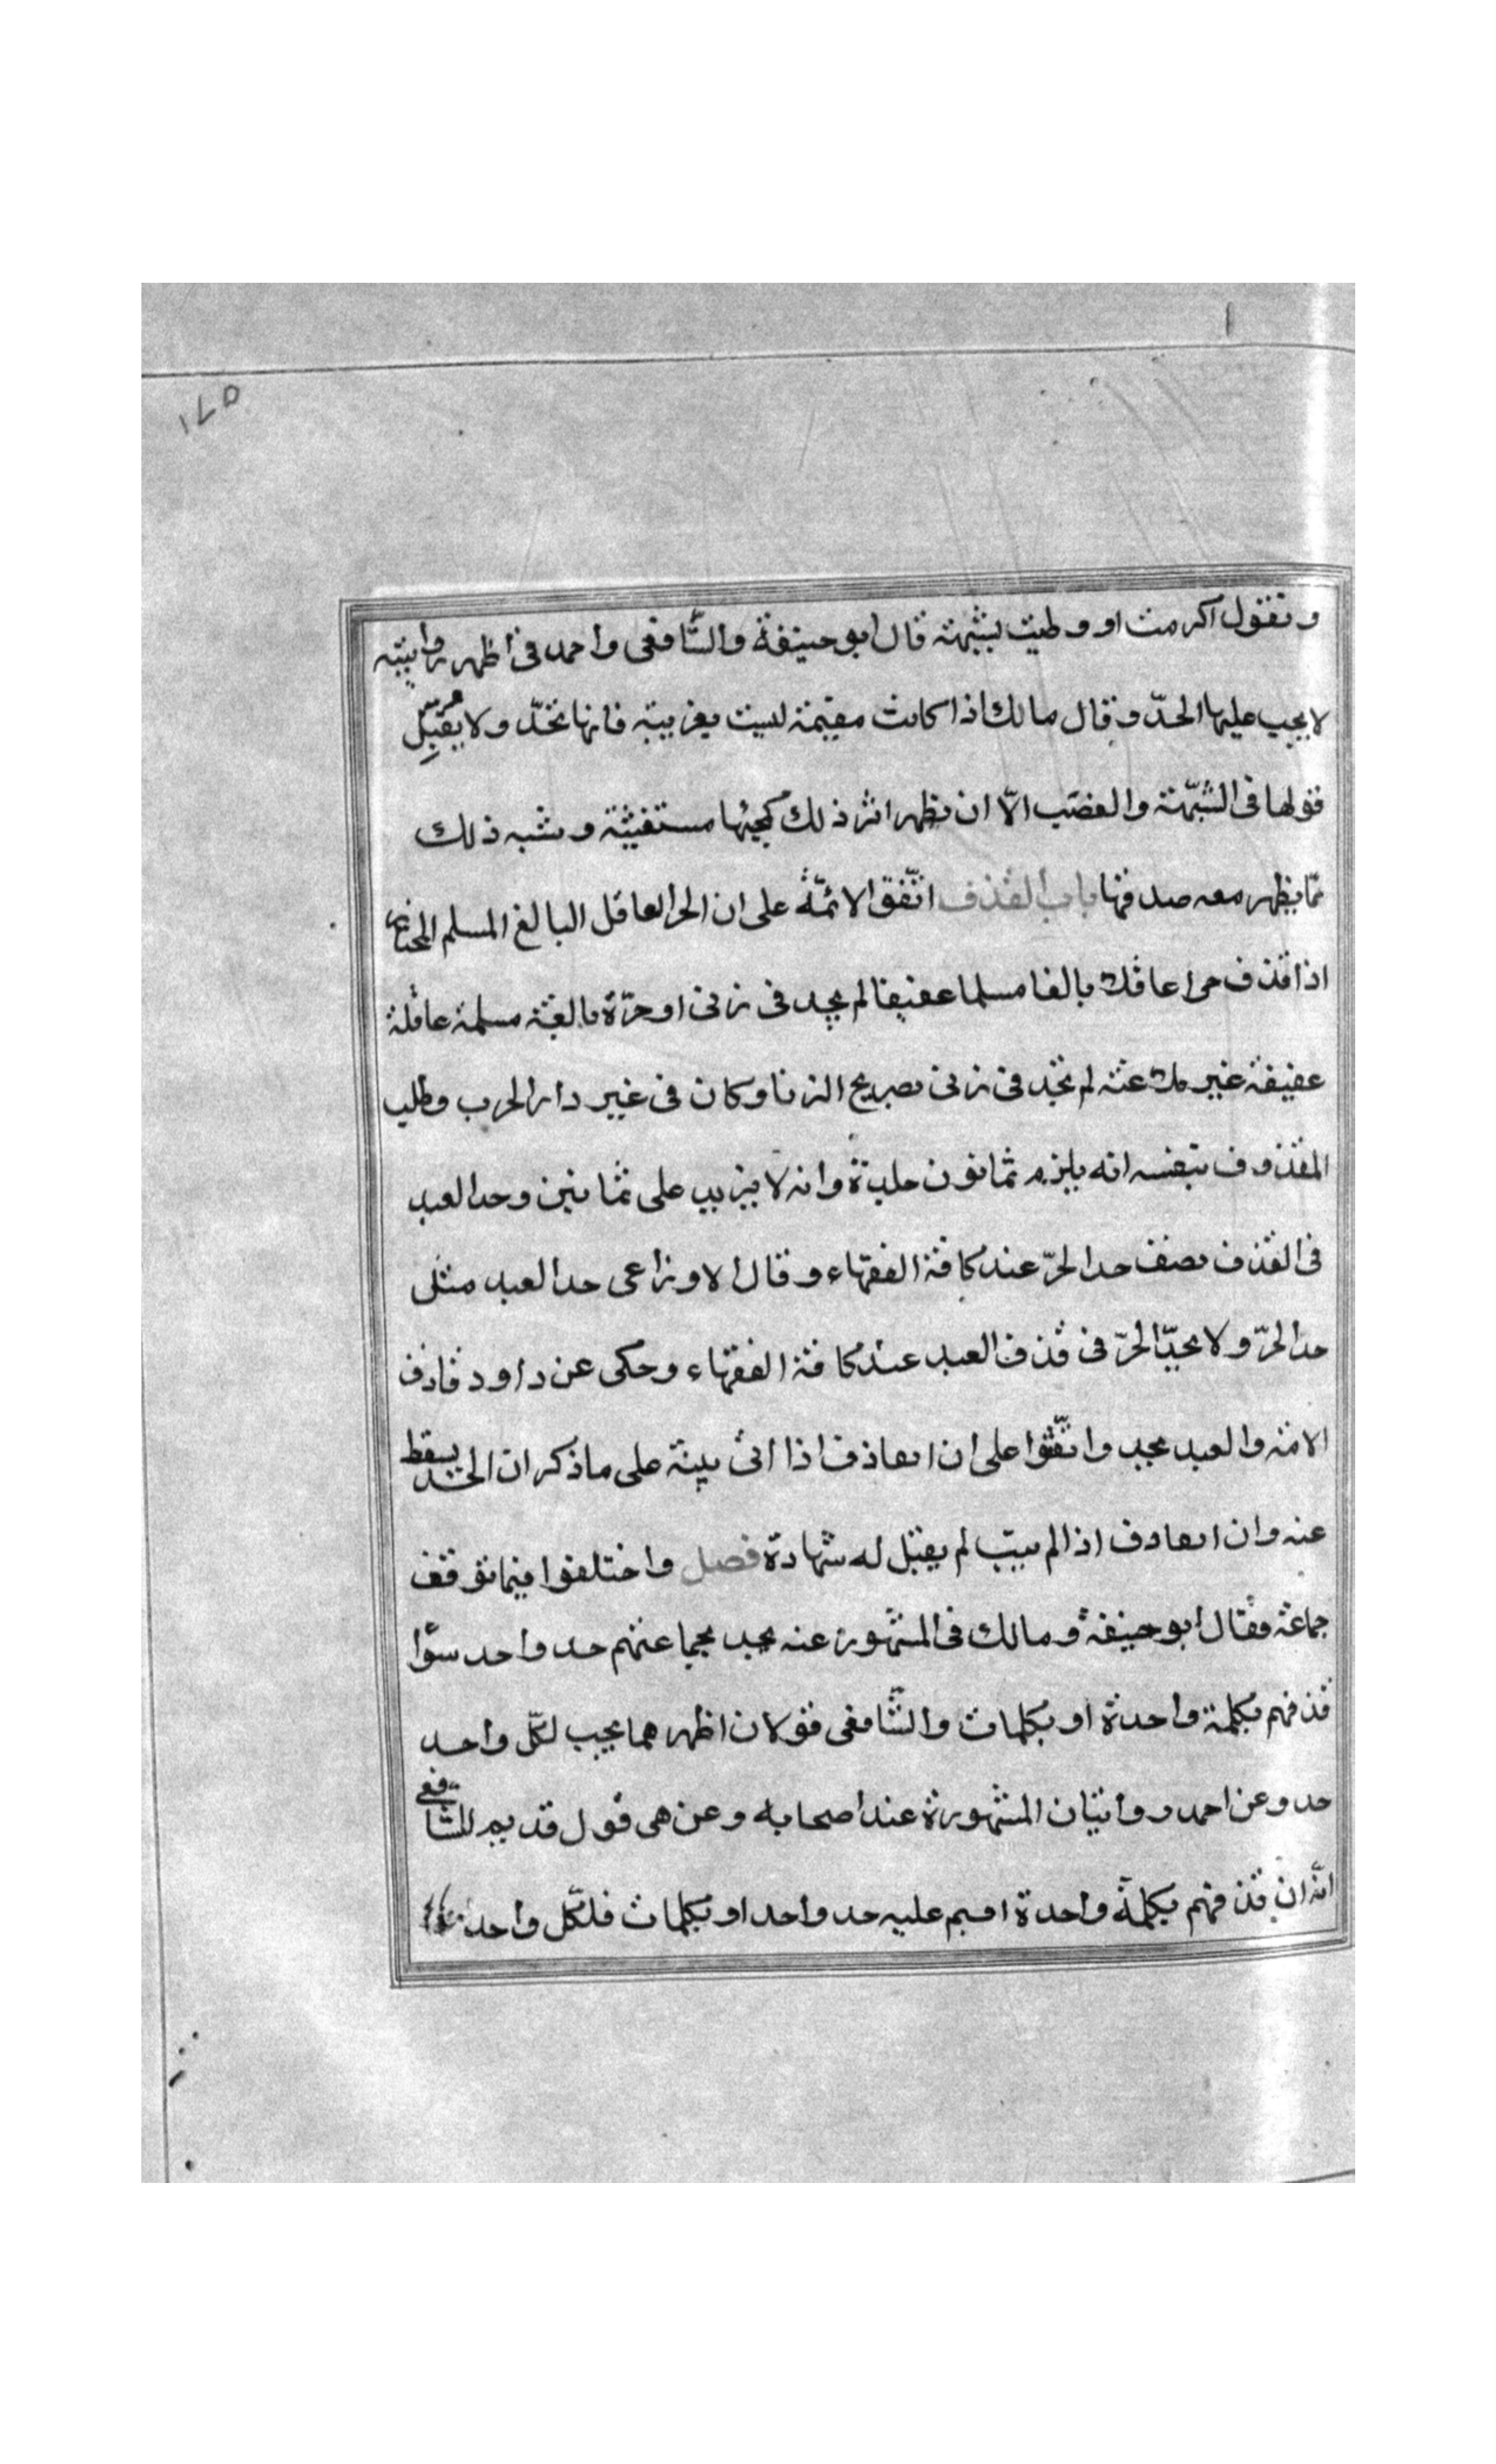 ١٧٥
وتقول اكرمت او وطيت بشبهة قال ابو حنيفة والشّافعى واحمد فى اظهر روايتيه
لا يجب عليها الحدّ وقال مالك اذا كانت مقيمة ليست بغريبة فانها تحدّ ولا يقبل
قولها فى الشّبهة والغصب الّا ان يظهر اثر ذلك كمجيئها مستغيثة وشبه ذلك
ممّا يظهر معه صدقها باب القذف اتّفق الائمّة على ان الحر العاقل البالغ المسلم المختار
اذا قذف حرا عاقلا بالغا مسلما عفيفا لم يحد فى زنى او حرّة بالغة مسلمة عاقلة
عفيفة غير ملاعنة لم تحد فى زنى بصريح الزنا وكان فى غير دار الحرب وطلب
المقذوف بنفسه انه يلزم ثمانون جلدة وانه لا يزيد على ثمانين وحد العبد
فى القذف نصف حد الحرّ عند كافة الفقهاء وقال الاوزاعى حد العبد مثل
حد الحرّ ولا يحدّ الحرّ فى قذف العبد عند كافة الفقهاء وحكى عن داود قاذف
الامة والعبد يحد واتّفقوا على ان القاذف اذا اتى ببينة على ما ذكر ان الحد يسقط
عنه وان القاذف اذا لم يتب لم يقبل له شهادة فصل واختلفوا فيما توقف
جماعة فقال ابو حنيفة ومالك فى المشهور عنه يحد بجماعتهم حد واحد سوا
قذفهم بكلمة واحدة او بكلمات والشّافعى قولان اظهرهما يجب لكلّ واحد
حد وعن احمد روايتان المشهورة عند اصحابه وعن هى قول قديم للشّافعى
انّه ان قذفهم بكلمة واحدة اقيم عليه حد واحد او بكلمات فلكّل واحد